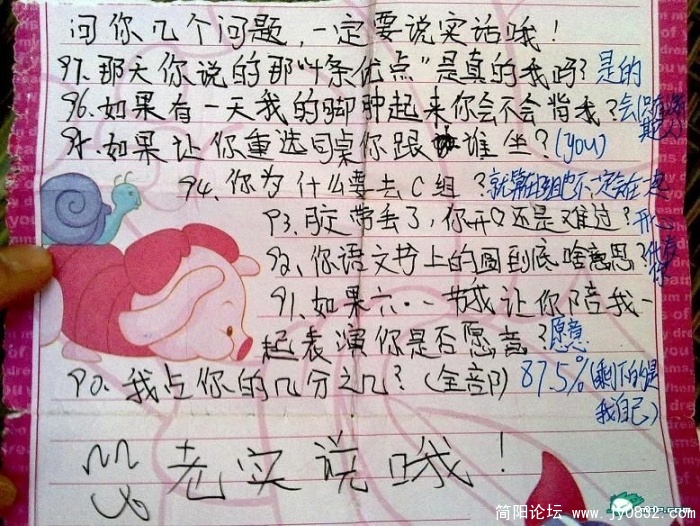 问你几个问题，一定要说实话哦！
97.那天你说的那"4条优点"是真的我吗？是的
96.如果有一天我的脚肿起来你会不会背我？会
95.如果让你重选同桌你跟谁坐？(you)
94.你为什么要去C组？就算在组也不一定会在一起
93.胶带丢了，你开心还是难过？开心
92、你语文书上的圆到底啥意思？代表你
91.如果六·一节我让你陪我一
起表演你是否愿意？愿意
90.我占你的几分之几？(全部) 87.5%(剩下的是
我自己)
老实说哦！
简阳论坛 www.jy0832.com